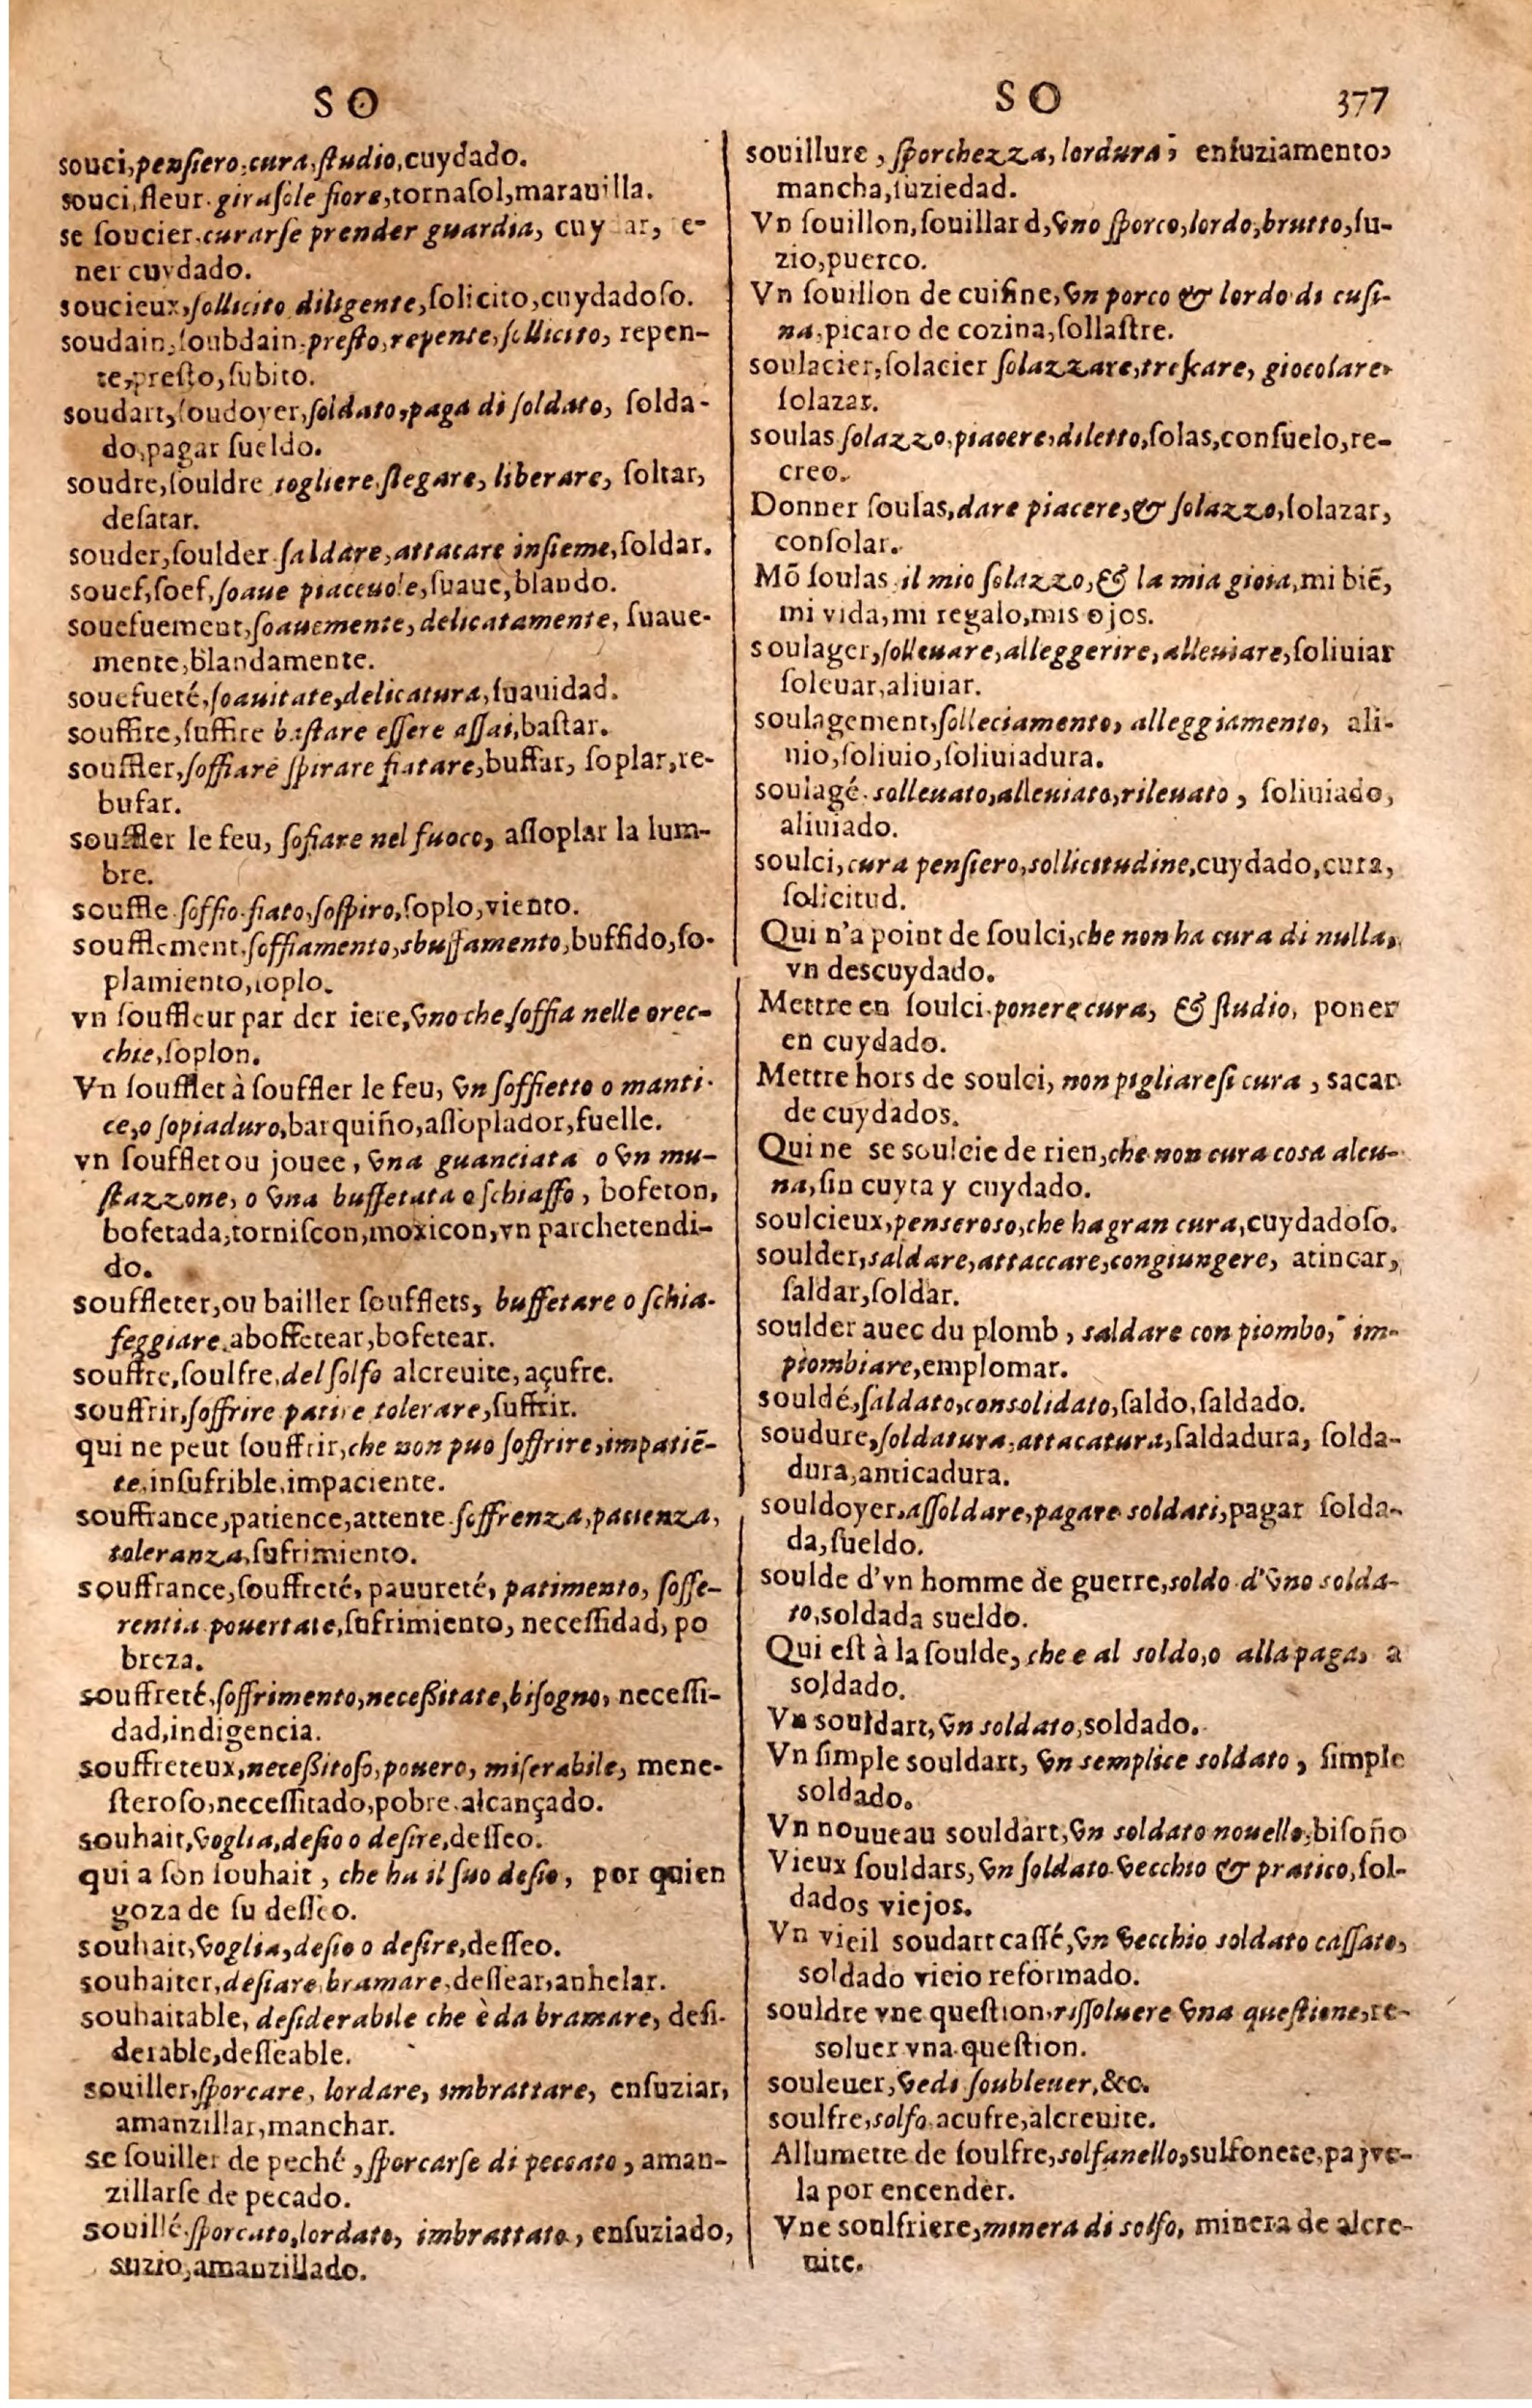 S O
souci, pensiero, cura, studio, cuydado.
souci, fleur. girasole fiore, tornasol, marauilla.
se soucier, curarse prender guardia, cuydar, te-
ner cuydado.
soucieux, sollicito diligente, solicito, cuydadoso.
soudain, soubdain, presto, repente, sollicito, repen-
te, presto, subito.
soudart, soudoyer, soldato, paga di soldato, solda-
do, pagar sueldo.
soudre, souldre togliere slegare, liberare, soltar,
desatar.
souder, soulder saldare, attacare insieme, soldar.
souef, soef, soaue piaceuole, suaue, blando.
souefuement, soauemente, delicatamente, suaue-
mente, blandamente.
souefueté, soauitate, delicatura, suauidad.
souffire, suffire bastare essere assai, bastar.
souffler, soffiare spirare fiatare, buffar, soplar, re-
bufar.
souffler le feu, sofiare nel fuoco, assoplar la lum-
bre.
souffle soffio fiato, sospiro, soplo, viento.
soufflement, soffiamento, sbuffamento, buffido, so-
plamiento, soplo.
vn souffleur par der iere, vno che soffia nelle orec-
chie, soplon.
Vn soufflet à souffler le feu, vn soffietto o manti-
ce, o sopiaduro, barquiño, assoplador, fuelle.
vn soufflet ou jouee, vna guanciata o vn mu-
stazzone, o vna buffetata o schiaffo, bofeton,
bofetada, torniscon, moxicon, vn parchetendi-
do.
souffleter, ou bailler soufflets, buffetare o schia-
feggiare, aboffetear, bofetear.
souffre, soulfre, del solfo alcreuite, açufre.
souffrir, soffrire patire tolerare, suffrir.
qui ne peut souffrir, che non puo soffrire, impatiē-
te, insufrible, impaciente.
souffrance, patience, attente soffrenza, patienza,
toleranza, sufrimiento.
souffrance, souffreté, pauureté, patimento, soffe-
rentia pouertate, sufrimiento, necessidad, po
breza.
souffreté, soffrimento, necessitate, bisogno, necessi-
dad, indigencia.
souffreteux, necessitoso, pouero, miserabile, mene-
steroso, necessitado, pobre, alcançado.
souhait, voglia, desio o desire, desseo.
qui a son souhait, che ha il suo desio, por quien
goza de su desseo.
souhait, voglia, desio o desire, desseo.
souhaiter, desiare bramare, dessear, anhelar.
souhaitable, desiderabile che è da bramare, desi-
derable, desseable.
souiller, sporcare, lordare, imbrattare, ensuziar,
amanzillar, manchar.
se souiller de peché, sporcarse di peccato, aman-
zillarse de pecado.
souillé sporcato, lordato, imbrattato, ensuziado,
suzio, amanzillado.
S O 377
souillure, sporchezza, lordura, ensuziamento,
mancha, suziedad.
Vn souillon, souillard, vno sporco, lordo, brutto, su-
zio, puerco.
Vn souillon de cuisine, vn porco & lordo di cusi-
na, picaro de cozina, sollastre.
soulacier, solacier solazzare, trescare, giocolare,
solazar.
soulas solazzo, piacere, diletto, solas, consuelo, re-
creo.
Donner soulas, dare piacere, & solazzo, solazar,
consolar.
Mō soulas il mio solazzo, & la mia gioia, mi biē,
mi vida, mi regalo, mis ojos.
soulager, solleuare, alleggerire, alleuiare, soliuiar
soleuar, aliuiar.
soulagement, solleciamento, alleggiamento, ali-
uio, soliuio, soliuiadura.
soulagé solleuato, alleuiato, rileuato, soliuiado,
aliuiado.
soulci, cura pensiero, sollicitudine, cuydado, cura,
solicitud.
Qui n'a point de soulci, che non ha cura di nulla,
vn descuydado.
Mettre en soulci. ponere cura, & studio, poner
en cuydado.
Mettre hors de soulci, non pigliaresi cura, sacar
de cuydados.
Qui ne se soulcie de rien, che non cura cosa alcu-
na, sin cuyta y cuydado.
soulcieux, penseroso, che ha gran cura, cuydadoso.
soulder, saldare, attaccare, congiungere, atincar,
saldar, soldar.
soulder auec du plomb, saldare con piombo, im-
piombiare, emplomar.
souldé, saldato, consolidato, saldo, saldado.
soudure, soldatura, attacatura, saldadura, solda-
dura, anticadura.
souldoyer, assoldare, pagare soldati, pagar solda-
da, sueldo.
soulde d'vn homme de guerre, soldo d'vno solda-
to, soldada sueldo.
Qui est à la soulde, che e al soldo, o alla paga, a
soldado.
Vn souldart, vn soldato, soldado.
Vn simple souldart, vn semplice soldato, simple
soldado.
Vn nouueau souldart, vn soldato nouello, bisoño
Vieux souldars, vn soldato vecchio & pratico, sol-
dados viejos.
Vn vieil soudart cassé, vn vecchio soldato cassato,
soldado vieio reformado.
souldre vne question, rissoluere vna questione, re-
soluer vna question.
souleuer, vedi soubleuer, &c.
soulfre, solfo acufre, alcreuite.
Allumette de soulfre, solfanello, sulfonete, pajve-
la por encender.
Vne soulfriere, minera di solfo, minera de alcre-
uite.